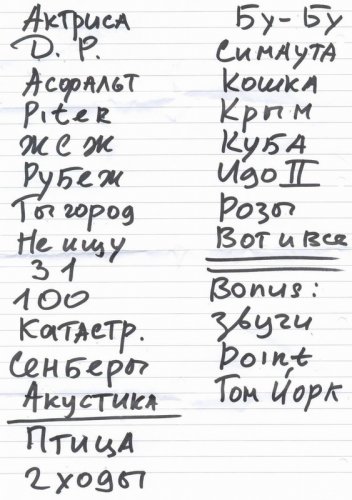 Актриса
D. P.
Асфальт
Piter
ЖСЖ
Рубеж
Ты город
Не ищу
31
100
Катастр.
Сенберы
Акустика
Птица
2 ходы
Бу-Бу
Симаута
Кошка
Крым
Куба
Идо II
Розы
Вот и все
Bonus:
Звучи
Point
Том Йорк